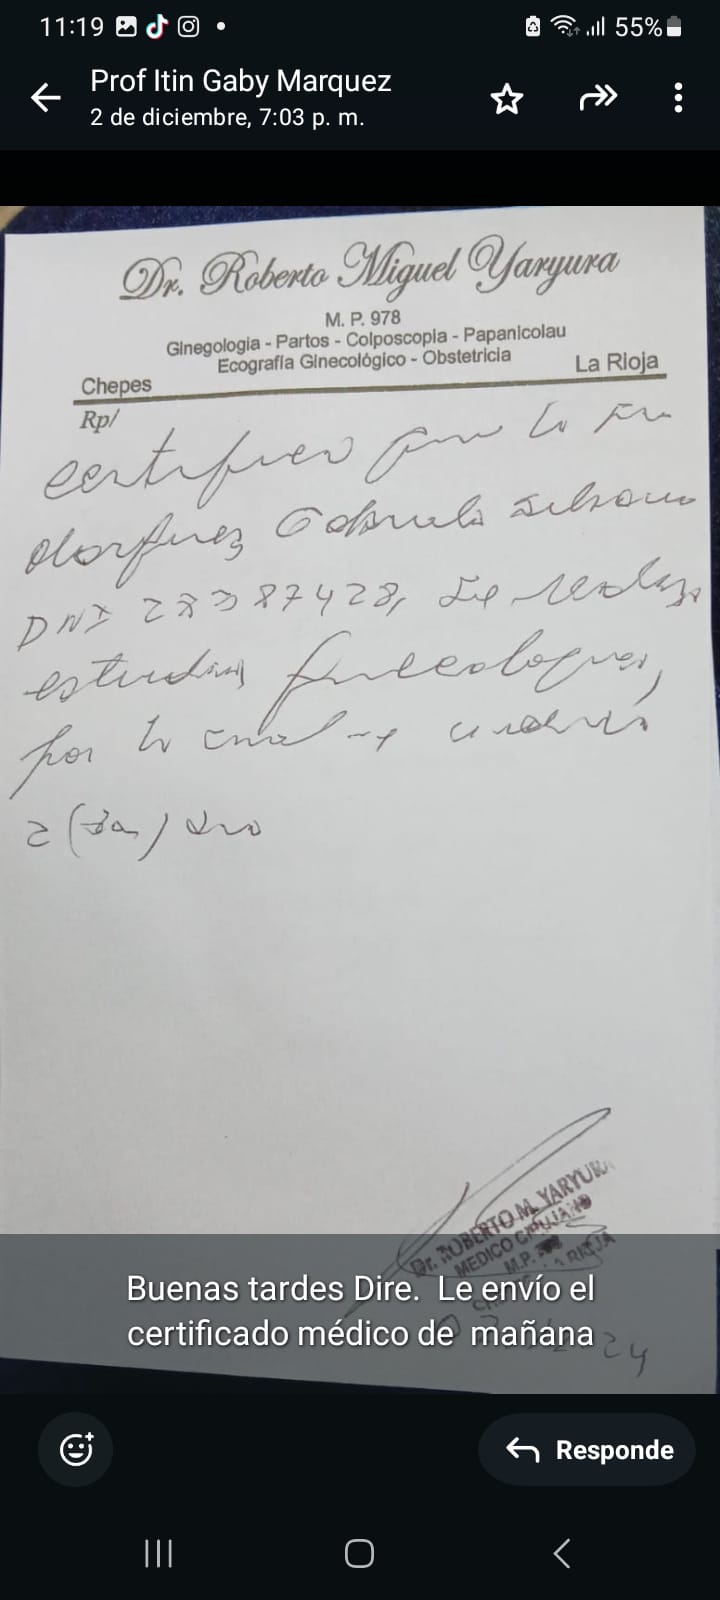 11:19
55%
Prof Itin Gaby Marquez
2 de diciembre, 7:03 p. m.
Dr. Roberto Miguel Yaryura
M. P. 978
Ginegologia - Partos - Colposcopia - Papanicolau
Ecografía Ginecológico - Obstetricia
Chepes
La Rioja
Rp/
certifico que la
Gabriela
DNI 28387428, se
estudios ginecologicos,
por lo cual
2 (dos)
Dr. ROBERTO M. YARYURA
MEDICO CIRUJANO
M.P.
LA RIOJA
24
Buenas tardes Dire. Le envío el
certificado médico de mañana
Responde